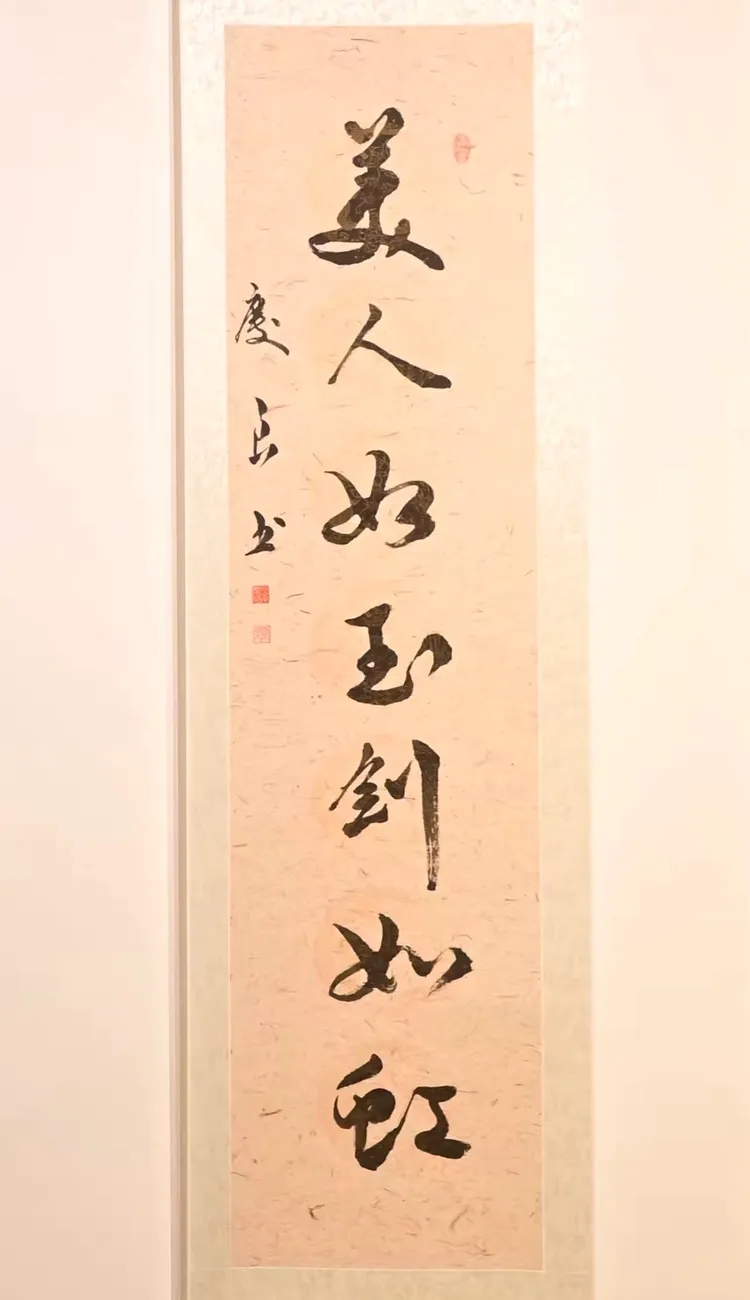 美人如玉剑如虹
庆良书